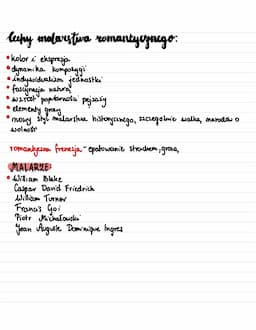 Cechy malarstwa romantycznego:
• kolor i ekspresja
• dynamika kompozycji
• indywidualizm jednostki
• fascynacja naturą
• wzrost popularności pejzaży
• elementy grozy
• nowy styl malarstwa historycznego, szczególnie walka narodów o
wolność
romantyczna frenezja - epatowanie strachem, grozą,
MALARZE:
• William Blake
Caspar David Friedrich
William Turner
Francis Goi
Piotr Michałowski
Jean Auguste Dominique Ingres